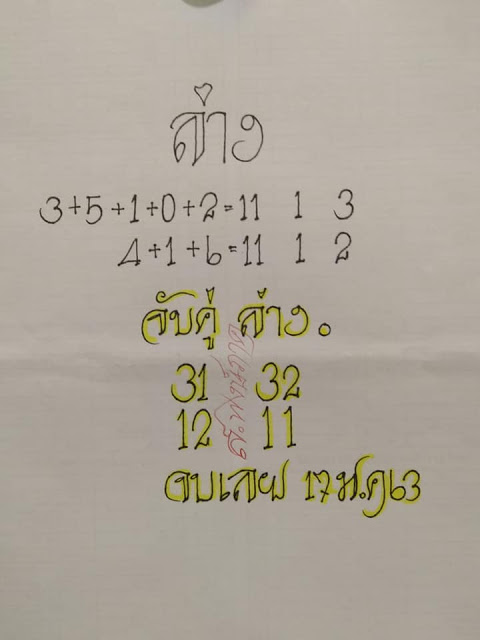 ล่าง
3+5+1+0+2=11 1 3
4+1+6=11 1 2
จับคู่ ล่าง.
31 32
12 11
จบเลย 17 ม.ค 63